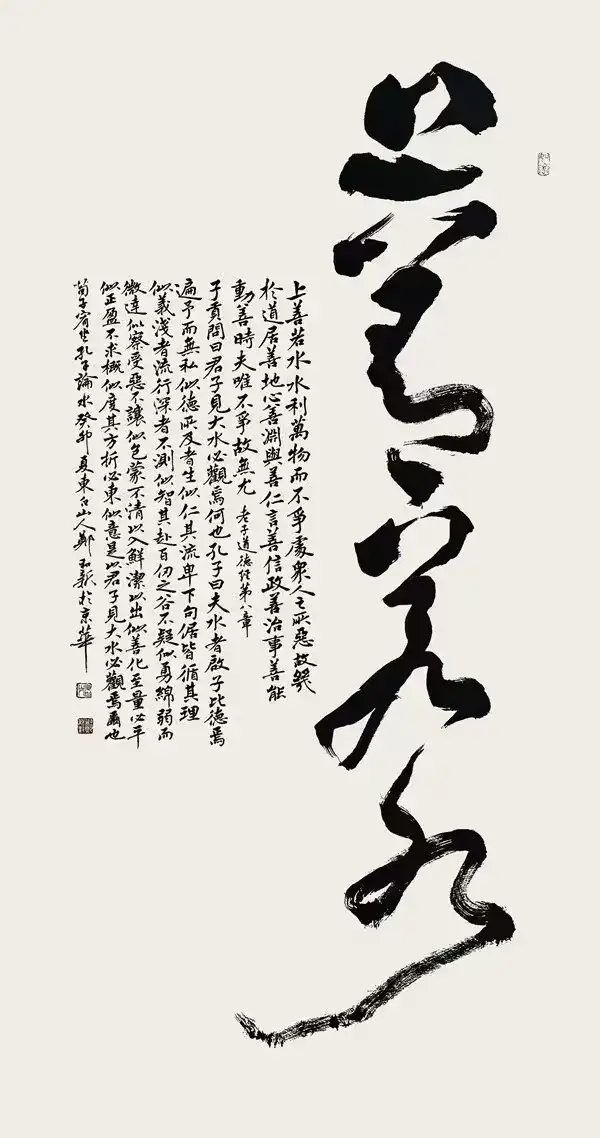 上善若水
上善若水水利萬物而不爭處衆人之所惡故幾
於道居善地心善淵與善仁言善信政善治事善能
動善時夫唯不爭故無尤 老子道德經第八章
子貢問曰君子見大水必觀焉何也孔子曰夫水者啟子比德焉
遍予而無私似德所及者生似仁其流卑下句倨皆循其理
似義淺者流行深者不測似智其赴百仞之谷不疑似勇綿弱而
微達似察受惡不讓似包蒙不清以入鮮潔以出似善化至量必平
似正盈不求概似度其方折必東似意是以君子見大水必觀焉爾也
荀子宥坐孔子論水癸卯夏東山人鄭於京華